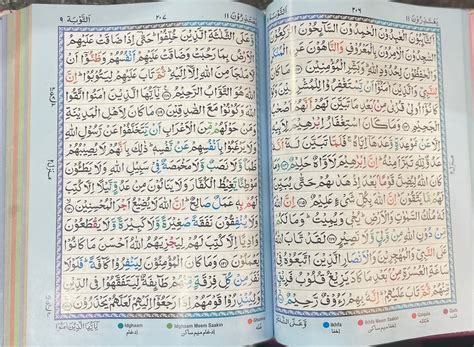 يَعْتَذِرُوْنَ ١١ ٢٠٦ اَلتَّوْبَة ٩
اَلتَّآئِبُوْنَ الْعٰبِدُوْنَ الْحٰمِدُوْنَ السَّآئِحُوْنَ الرّٰكِعُوْنَ
السّٰجِدُوْنَ الْاٰمِرُوْنَ بِالْمَعْرُوْفِ وَالنَّاهُوْنَ عَنِ الْمُنْكَرِ
وَالْحٰفِظُوْنَ لِحُدُوْدِ اللّٰهِ وَبَشِّرِ الْمُؤْمِنِيْنَ ﴿١١٢﴾ مَا كَانَ
لِلنَّبِيِّ وَالَّذِيْنَ اٰمَنُوْٓا اَنْ يَّسْتَغْفِرُوْا لِلْمُشْرِكِيْنَ
وَلَوْ كَانُوْٓا اُولِيْ قُرْبٰى مِنْۢ بَعْدِ مَا تَبَيَّنَ لَهُمْ اَنَّهُمْ اَصْحٰبُ
الْجَحِيْمِ ﴿١١٣﴾ وَمَا كَانَ اسْتِغْفَارُ اِبْرٰهِيْمَ لِاَبِيْهِ اِلَّا عَنْ
مَّوْعِدَةٍ وَّعَدَهَآ اِيَّاهُ فَلَمَّا تَبَيَّنَ لَهٗٓ اَنَّهٗ عَدُوٌّ لِّلّٰهِ
تَبَرَّاَ مِنْهُ اِنَّ اِبْرٰهِيْمَ لَاَوَّاهٌ حَلِيْمٌ ﴿١١٤﴾ وَمَا
كَانَ اللّٰهُ لِيُضِلَّ قَوْمًۢا بَعْدَ اِذْ هَدٰىهُمْ حَتّٰى يُبَيِّنَ لَهُمْ
مَّا يَتَّقُوْنَ اِنَّ اللّٰهَ بِكُلِّ شَيْءٍ عَلِيْمٌ ﴿١١٥﴾ اِنَّ اللّٰهَ لَهٗ
مُلْكُ السَّمٰوٰتِ وَالْاَرْضِ يُحْيٖ وَيُمِيْتُ وَمَا لَكُمْ
مِّنْ دُوْنِ اللّٰهِ مِنْ وَّلِيٍّ وَّلَا نَصِيْرٍ ﴿١١٦﴾ لَقَدْ تَّابَ اللّٰهُ
عَلَى النَّبِيِّ وَالْمُهٰجِرِيْنَ وَالْاَنْصَارِ الَّذِيْنَ اتَّبَعُوْهُ
فِيْ سَاعَةِ الْعُسْرَةِ مِنْۢ بَعْدِ مَا كَادَ يَزِيْغُ قُلُوْبُ فَرِيْقٍ
مِّنْهُمْ ثُمَّ تَابَ عَلَيْهِمْ اِنَّهٗ بِهِمْ رَءُوْفٌ رَّحِيْمٌ ﴿١١٧﴾
وَعَلَى الثَّلٰثَةِ
Ikhfa Ikhfa Meem Saakin Qalqala Qalb
يَعْتَذِرُوْنَ ١١ ٢٠٧ اَلتَّوْبَة ٩
وَّعَلَى الثَّلٰثَةِ الَّذِيْنَ خُلِّفُوْا حَتّٰٓى اِذَا ضَاقَتْ عَلَيْهِمُ
الْاَرْضُ بِمَا رَحُبَتْ وَضَاقَتْ عَلَيْهِمْ اَنْفُسُهُمْ وَظَنُّوْٓا اَنْ
لَّا مَلْجَاَ مِنَ اللّٰهِ اِلَّآ اِلَيْهِ ثُمَّ تَابَ عَلَيْهِمْ لِيَتُوْبُوْا اِنَّ
اللّٰهَ هُوَ التَّوَّابُ الرَّحِيْمُ ﴿١١٨﴾ يٰٓاَيُّهَا الَّذِيْنَ اٰمَنُوا اتَّقُوا
اللّٰهَ وَكُوْنُوْا مَعَ الصّٰدِقِيْنَ ﴿١١٩﴾ مَا كَانَ لِاَهْلِ الْمَدِيْنَةِ
وَمَنْ حَوْلَهُمْ مِّنَ الْاَعْرَابِ اَنْ يَّتَخَلَّفُوْا عَنْ رَّسُوْلِ اللّٰهِ
وَلَا يَرْغَبُوْا بِاَنْفُسِهِمْ عَنْ نَّفْسِهٖ ذٰلِكَ بِاَنَّهُمْ لَا يُصِيْبُهُمْ
ظَمَاٌ وَّلَا نَصَبٌ وَّلَا مَخْمَصَةٌ فِيْ سَبِيْلِ اللّٰهِ وَلَا يَطَئُوْنَ
مَوْطِئًا يَّغِيْظُ الْكُفَّارَ وَلَا يَنَالُوْنَ مِنْ عَدُوٍّ نَّيْلًا اِلَّا كُتِبَ
لَهُمْ بِهٖ عَمَلٌ صَالِحٌ اِنَّ اللّٰهَ لَا يُضِيْعُ اَجْرَ الْمُحْسِنِيْنَ ﴿١٢٠﴾
وَلَا يُنْفِقُوْنَ نَفَقَةً صَغِيْرَةً وَّلَا كَبِيْرَةً وَّلَا يَقْطَعُوْنَ
وَادِيًا اِلَّا كُتِبَ لَهُمْ لِيَجْزِيَهُمُ اللّٰهُ اَحْسَنَ مَا كَانُوْا
يَعْمَلُوْنَ ﴿١٢١﴾ وَمَا كَانَ الْمُؤْمِنُوْنَ لِيَنْفِرُوْا كَآفَّةً فَلَوْلَا
نَفَرَ مِنْ كُلِّ فِرْقَةٍ مِّنْهُمْ طَآئِفَةٌ لِّيَتَفَقَّهُوْا فِي الدِّيْنِ
وَلِيُنْذِرُوْا قَوْمَهُمْ اِذَا رَجَعُوْٓا اِلَيْهِمْ لَعَلَّهُمْ يَحْذَرُوْنَ ﴿١٢٢﴾
يٰٓاَيُّهَا الَّذِيْنَ اٰمَنُوْا
Idghaam Idghaam Meem Saakin